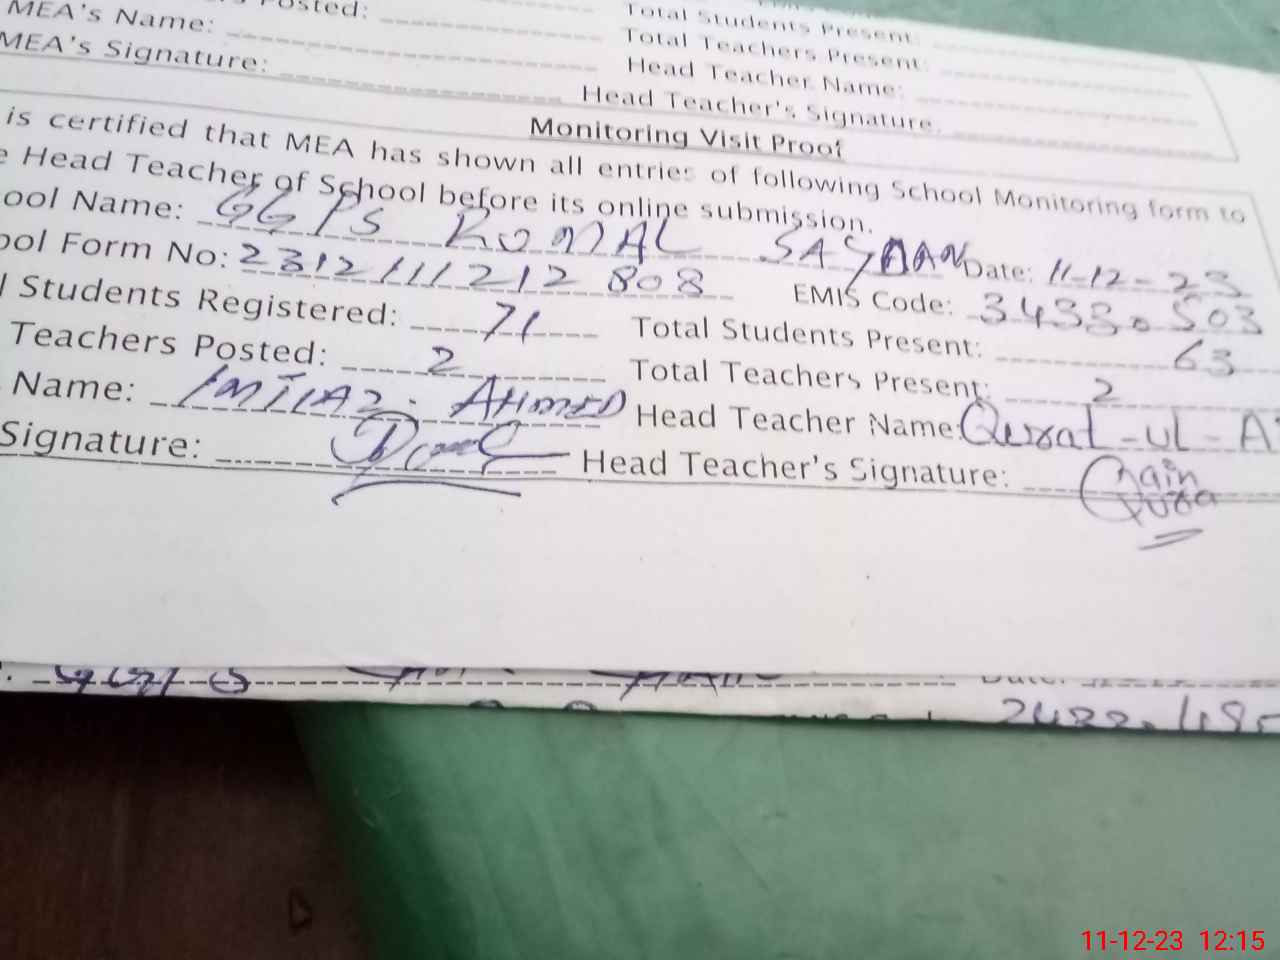 s Posted:
Total Students Present:
MEA's Name:
Total Teachers Present:
MEA's Signature:
Head Teacher Name:
Head Teacher's Signature.
Monitoring Visit Proof
is certified that MEA has shown all entries of following School Monitoring form to
e Head Teacher of School before its online submission.
ool Name: GGPS Date: 11-12-23
ool Form No: 2312111212808 EMIS Code: 34330503
l Students Registered: 71 Total Students Present: 63
Teachers Posted: 2 Total Teachers Present: 2
Name: IMTIAZ AHMED Head Teacher Name: Qurat-ul-A
Signature: Head Teacher's Signature: Qurat
ain
11-12-23 12:15